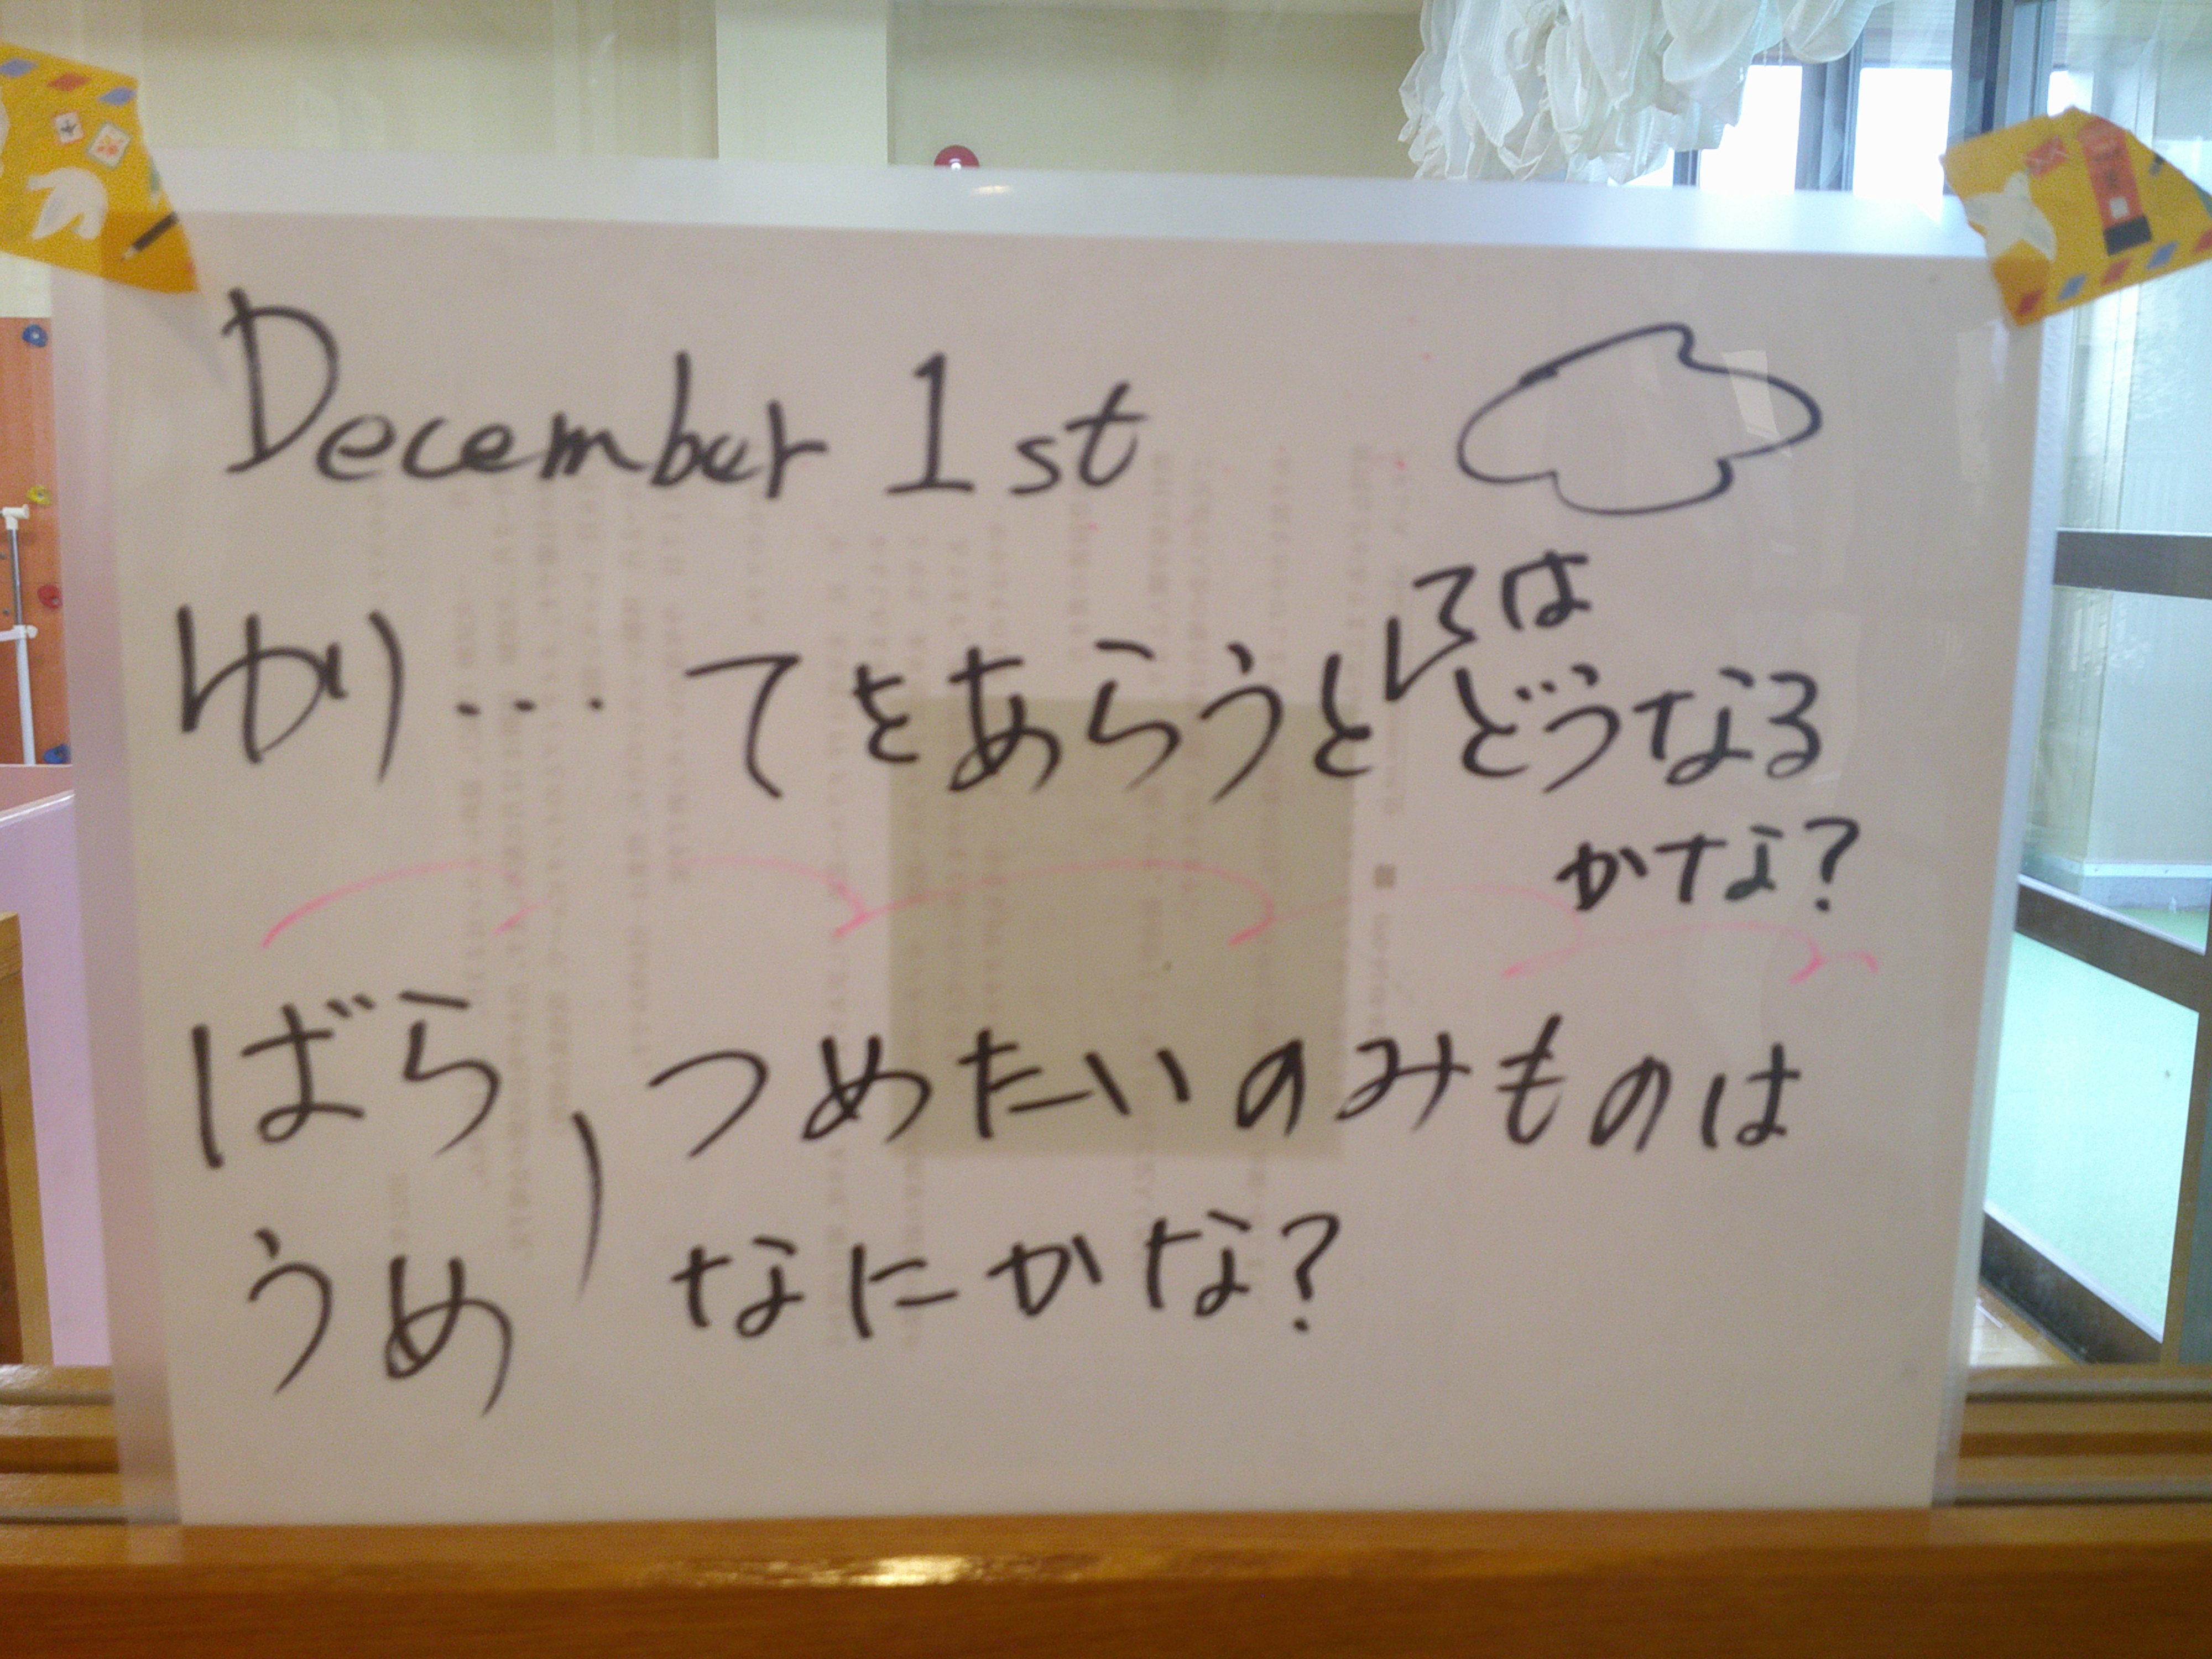 December 1st
ゆり… てをあらうと ては どうなる
かな?
ばら つめたいのみものは
うめ なにかな?